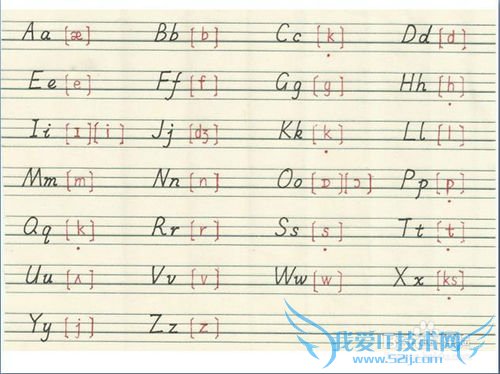 Aa [æ] Bb [b] Cc [k] Dd [d]
Ee [e] Ff [f] Gg [g] Hh [h]
Ii [ɪ][i] Jj [dʒ] Kk [k] Ll [l]
Mm [m] Nn [n] Oo [ɒ][ɔ] Pp [p]
Qq [k] Rr [r] Ss [s] Tt [t]
Uu [ʌ] Vv [v] Ww [w] Xx [ks]
Yy [j] Zz [z]
我爱IT技术网
www.52ij.com